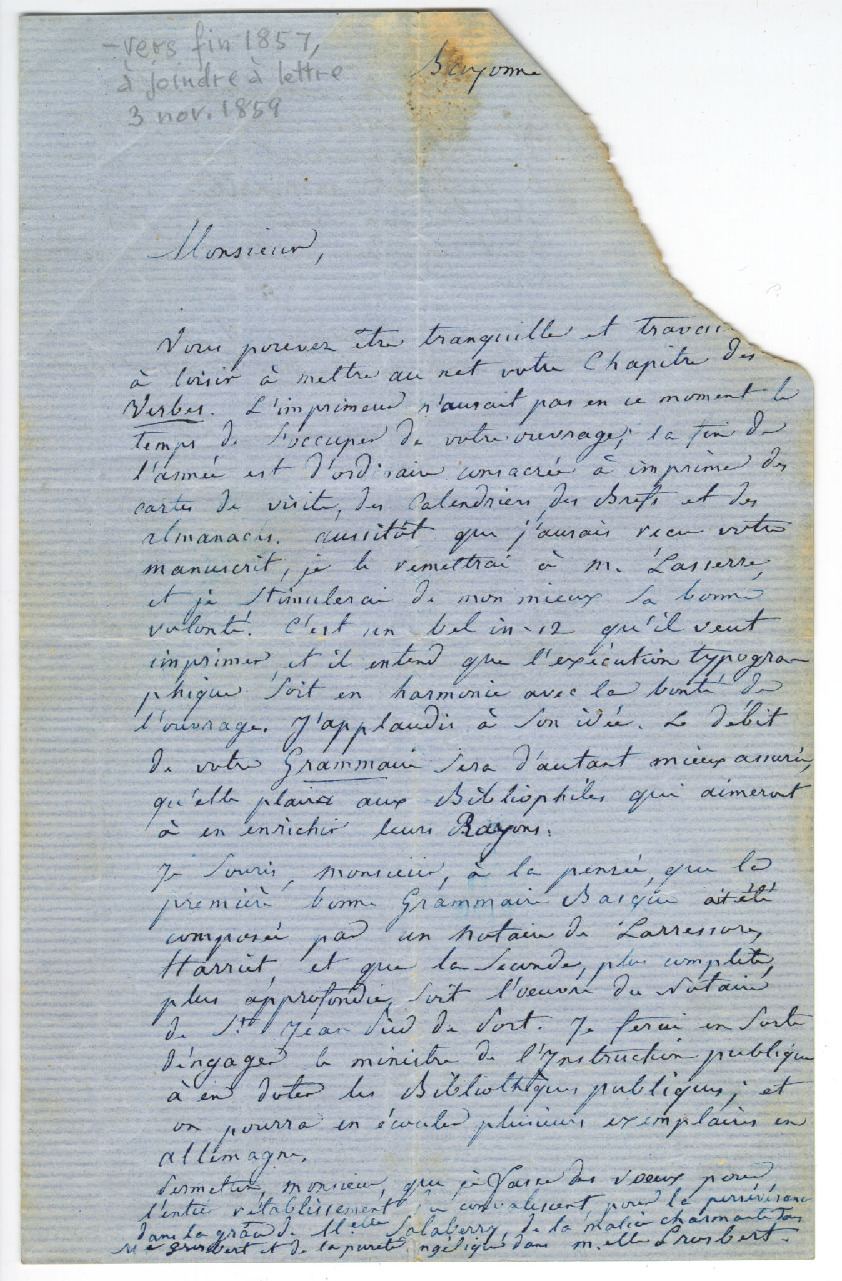 - vers fin 1857,
à joindre à lettre
3 nov. 1859
Bayonne
Monsieur,
Vous pouvez être tranquille et travai
à loisir à mettre au net votre Chapitre des
Verbes. L'imprimeur n'aurait pas en ce moment le
temps de s'occuper de votre ouvrage; la fin de
l'année est d'ordinaire consacrée à imprimer des
cartes de visite, des Calendriers, des Brefs et des
almanacs. aussitôt que j'aurais recu votre
manuscrit, je le remettrai à m. Lasserre,
et je stimulerai de mon mieux sa bonne
volonté. C'est un bel in-12 qu'il veut
imprimer, et il entend que l'exécution typogra
phique soit en harmonie avec la bonté de
l'ouvrage. J'applaudis à son idée. Le débit
de votre Grammaire sera d'autant mieux assuré,
qu'elle plaira aux Bibliophiles qui aimeront
à en enrichir leurs Rayons.
Je souris, monsieur, à la pensée, que la
première bonne Grammaire Basque a été
composée par un Notaire de Larressore,
Harriet, et que la seconde, plus complète,
plus approfondie, soit l'oeuvre du Notaire
de St. Jean Pied de Port. Je ferai en sorte
d'engager le ministre de l'Instruction publique
à en doter les Bibliothèques publiques; et
on pourra en écouler plusieurs exemplaires en
allemagne.
Permettez, monsieur, que je fasse des voeux pour
l'entier rétablissement convalescent, pour la persévérance
dans la de Melle Salaberry, de la charmante
et de la pureté angélique dans m.elle